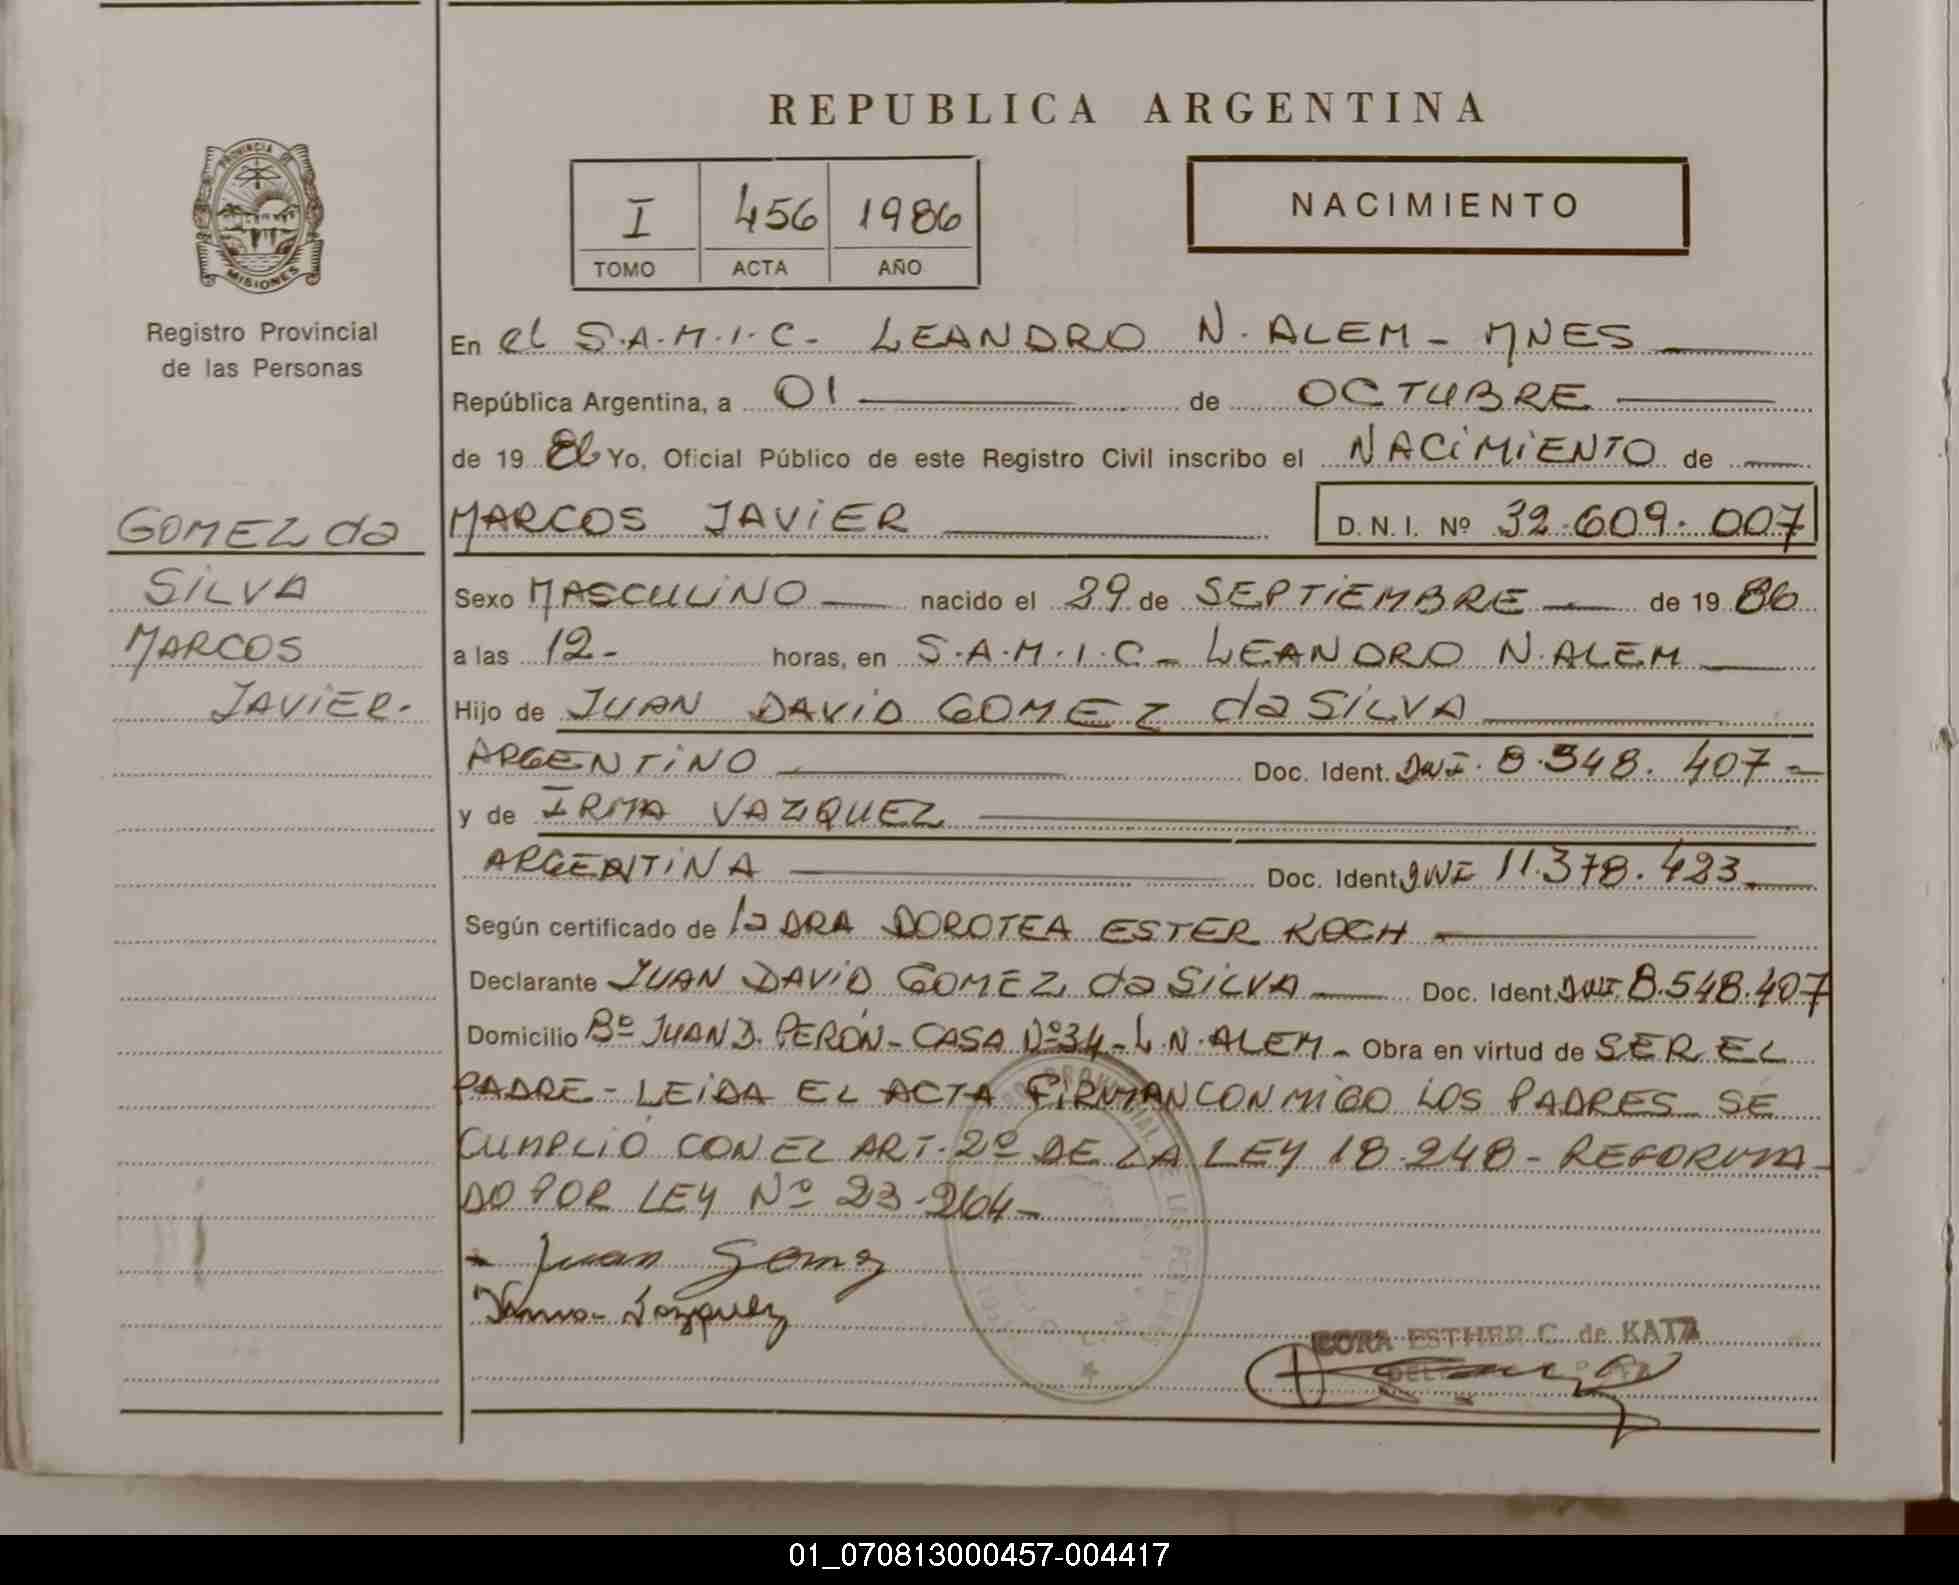 REPUBLICA ARGENTINA
PROVINCIA DE
MISIONES
Registro Provincial
de las Personas
I 456 1986
TOMO ACTA AÑO
NACIMIENTO
En el S.A.M.I.C- LEANDRO N. ALEM - MNES
República Argentina, a 01 de OCTUBRE
de 19 86 Yo, Oficial Público de este Registro Civil inscribo el NACIMIENTO de
MARCOS JAVIER D.N.I. Nº 32.609.007
GOMEZ da
SILVA
MARCOS
JAVIER.
Sexo MASCULINO nacido el 29 de SEPTIEMBRE de 19 86
a las 12- horas, en S.A.M.I.C - LEANDRO N. ALEM
Hijo de JUAN DAVID GOMEZ da SILVA
ARGENTINO Doc. Ident. DNI. 8.548.407-
y de IRMA VAZQUEZ
ARGENTINA Doc. Ident. DNI 11.378.423
Según certificado de la DRA DOROTEA ESTER KOCH
Declarante JUAN DAVID GOMEZ da SILVA Doc. Ident. DNI. 8.548.407
Domicilio Bº JUAN D. PERÓN - CASA Nº 34 - L.N. ALEM - Obra en virtud de SER EL
PADRE - LEIDA EL ACTA FIRMAN CONMIGO LOS PADRES SE
CUMPLIÓ CON EL ART. 2º DE LA LEY 18.248 - REFORMA-
DO POR LEY Nº 23.264-
Juan Gomez
Irma Vazquez
CORA ESTHER C. de KATZ
01_070813000457-004417